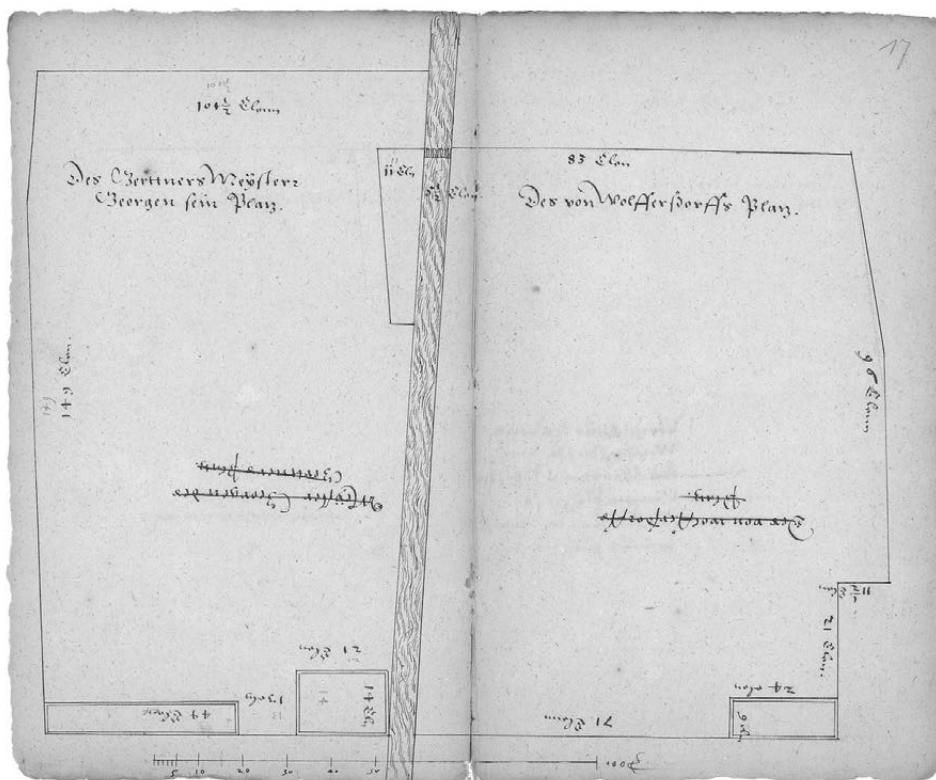 17
104½ Elenn
Des Gerttners Meÿsterr
Georgen sein Platz.
11 Eln
5½ Elen.
83 Elen
Des von Wolffersdorffs Platz.
149 Elen.
149
96 Elenn
Meÿster Georgen des
Gerttners Platz
Des von Wolffersdorffs
Platz
11½ Elen
21 Elen.
21 Elen
14 Eln
14
13 Eln
13
44 Elen
71 Elenn
24 elen
9 eln
5 10 20 30 40 50